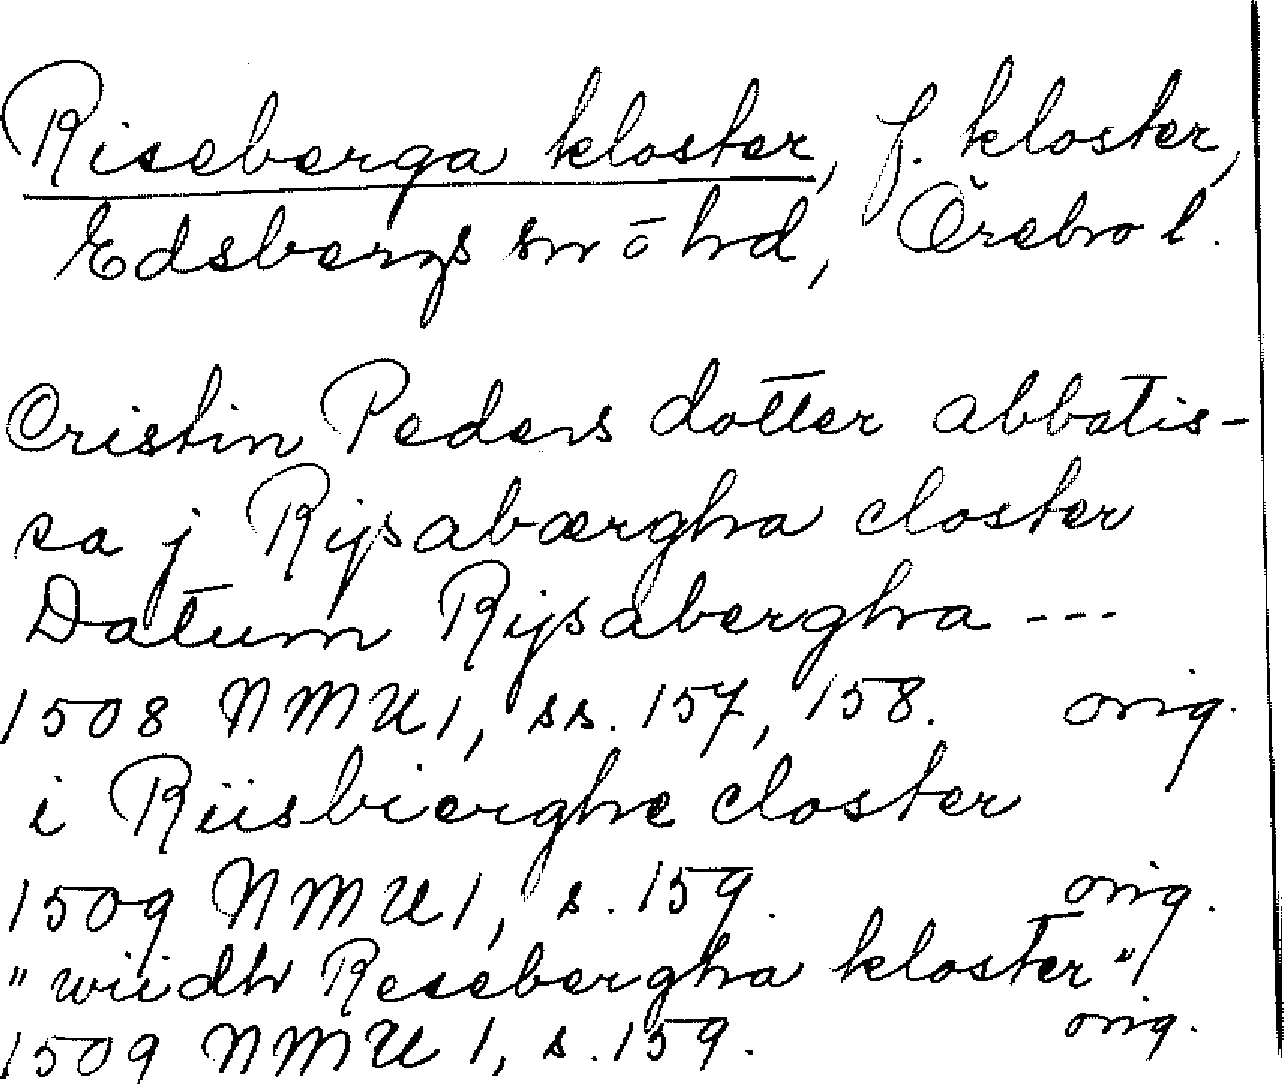 Riseberga kloster, f. kloster,
Edsbergs sn o hd, Örebro l.
Cristin Peders dotter abbatis-
sa j Rijsabærgha closter
Datum Rijsabergha ---
1508 NMU1, ss. 157, 158. orig.
i Riisbierghe closter
1509 NMU1, s. 159. orig.
"wiidh Resebergha kloster"
1509 NMU 1, s. 159. orig.